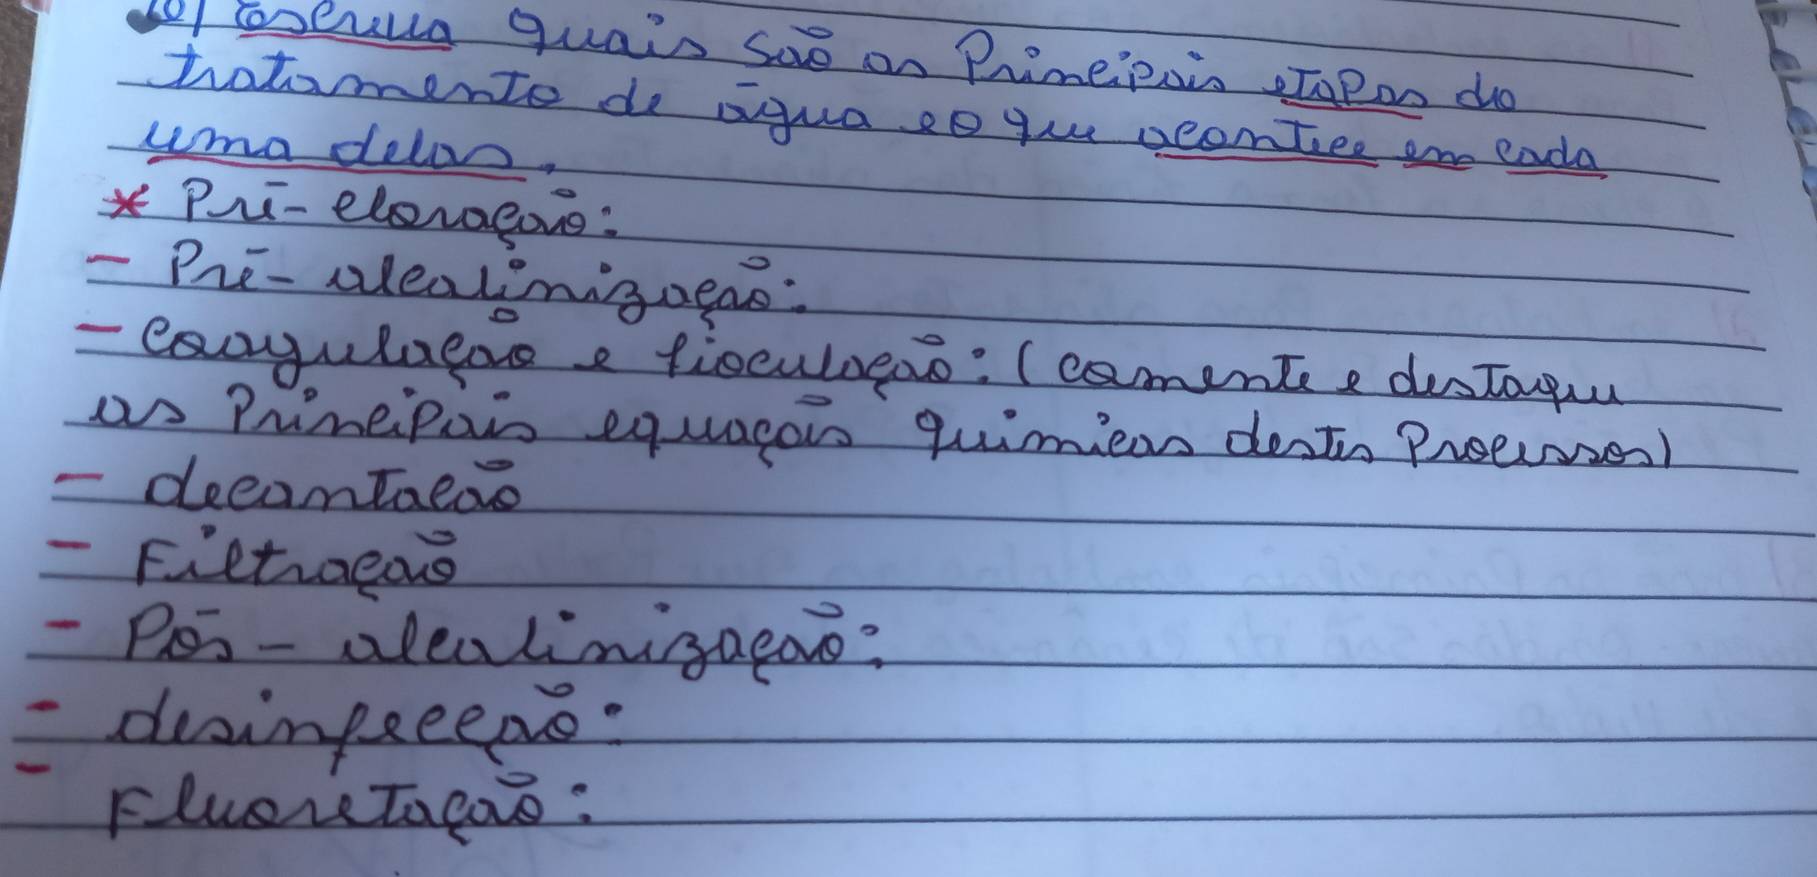 escreva quais são as Principais etapas do
tratamento de água e o que acontece em cada
uma delas.
* Pré-cloração:
- Pré-alcalinização:
- Coagulação e floculação: (comente e destaque
as Principais equações químicas destes Processos)
- decantação
- Filtração
- Pós-alcalinização:
- desinfecção:
- Fluoretação: